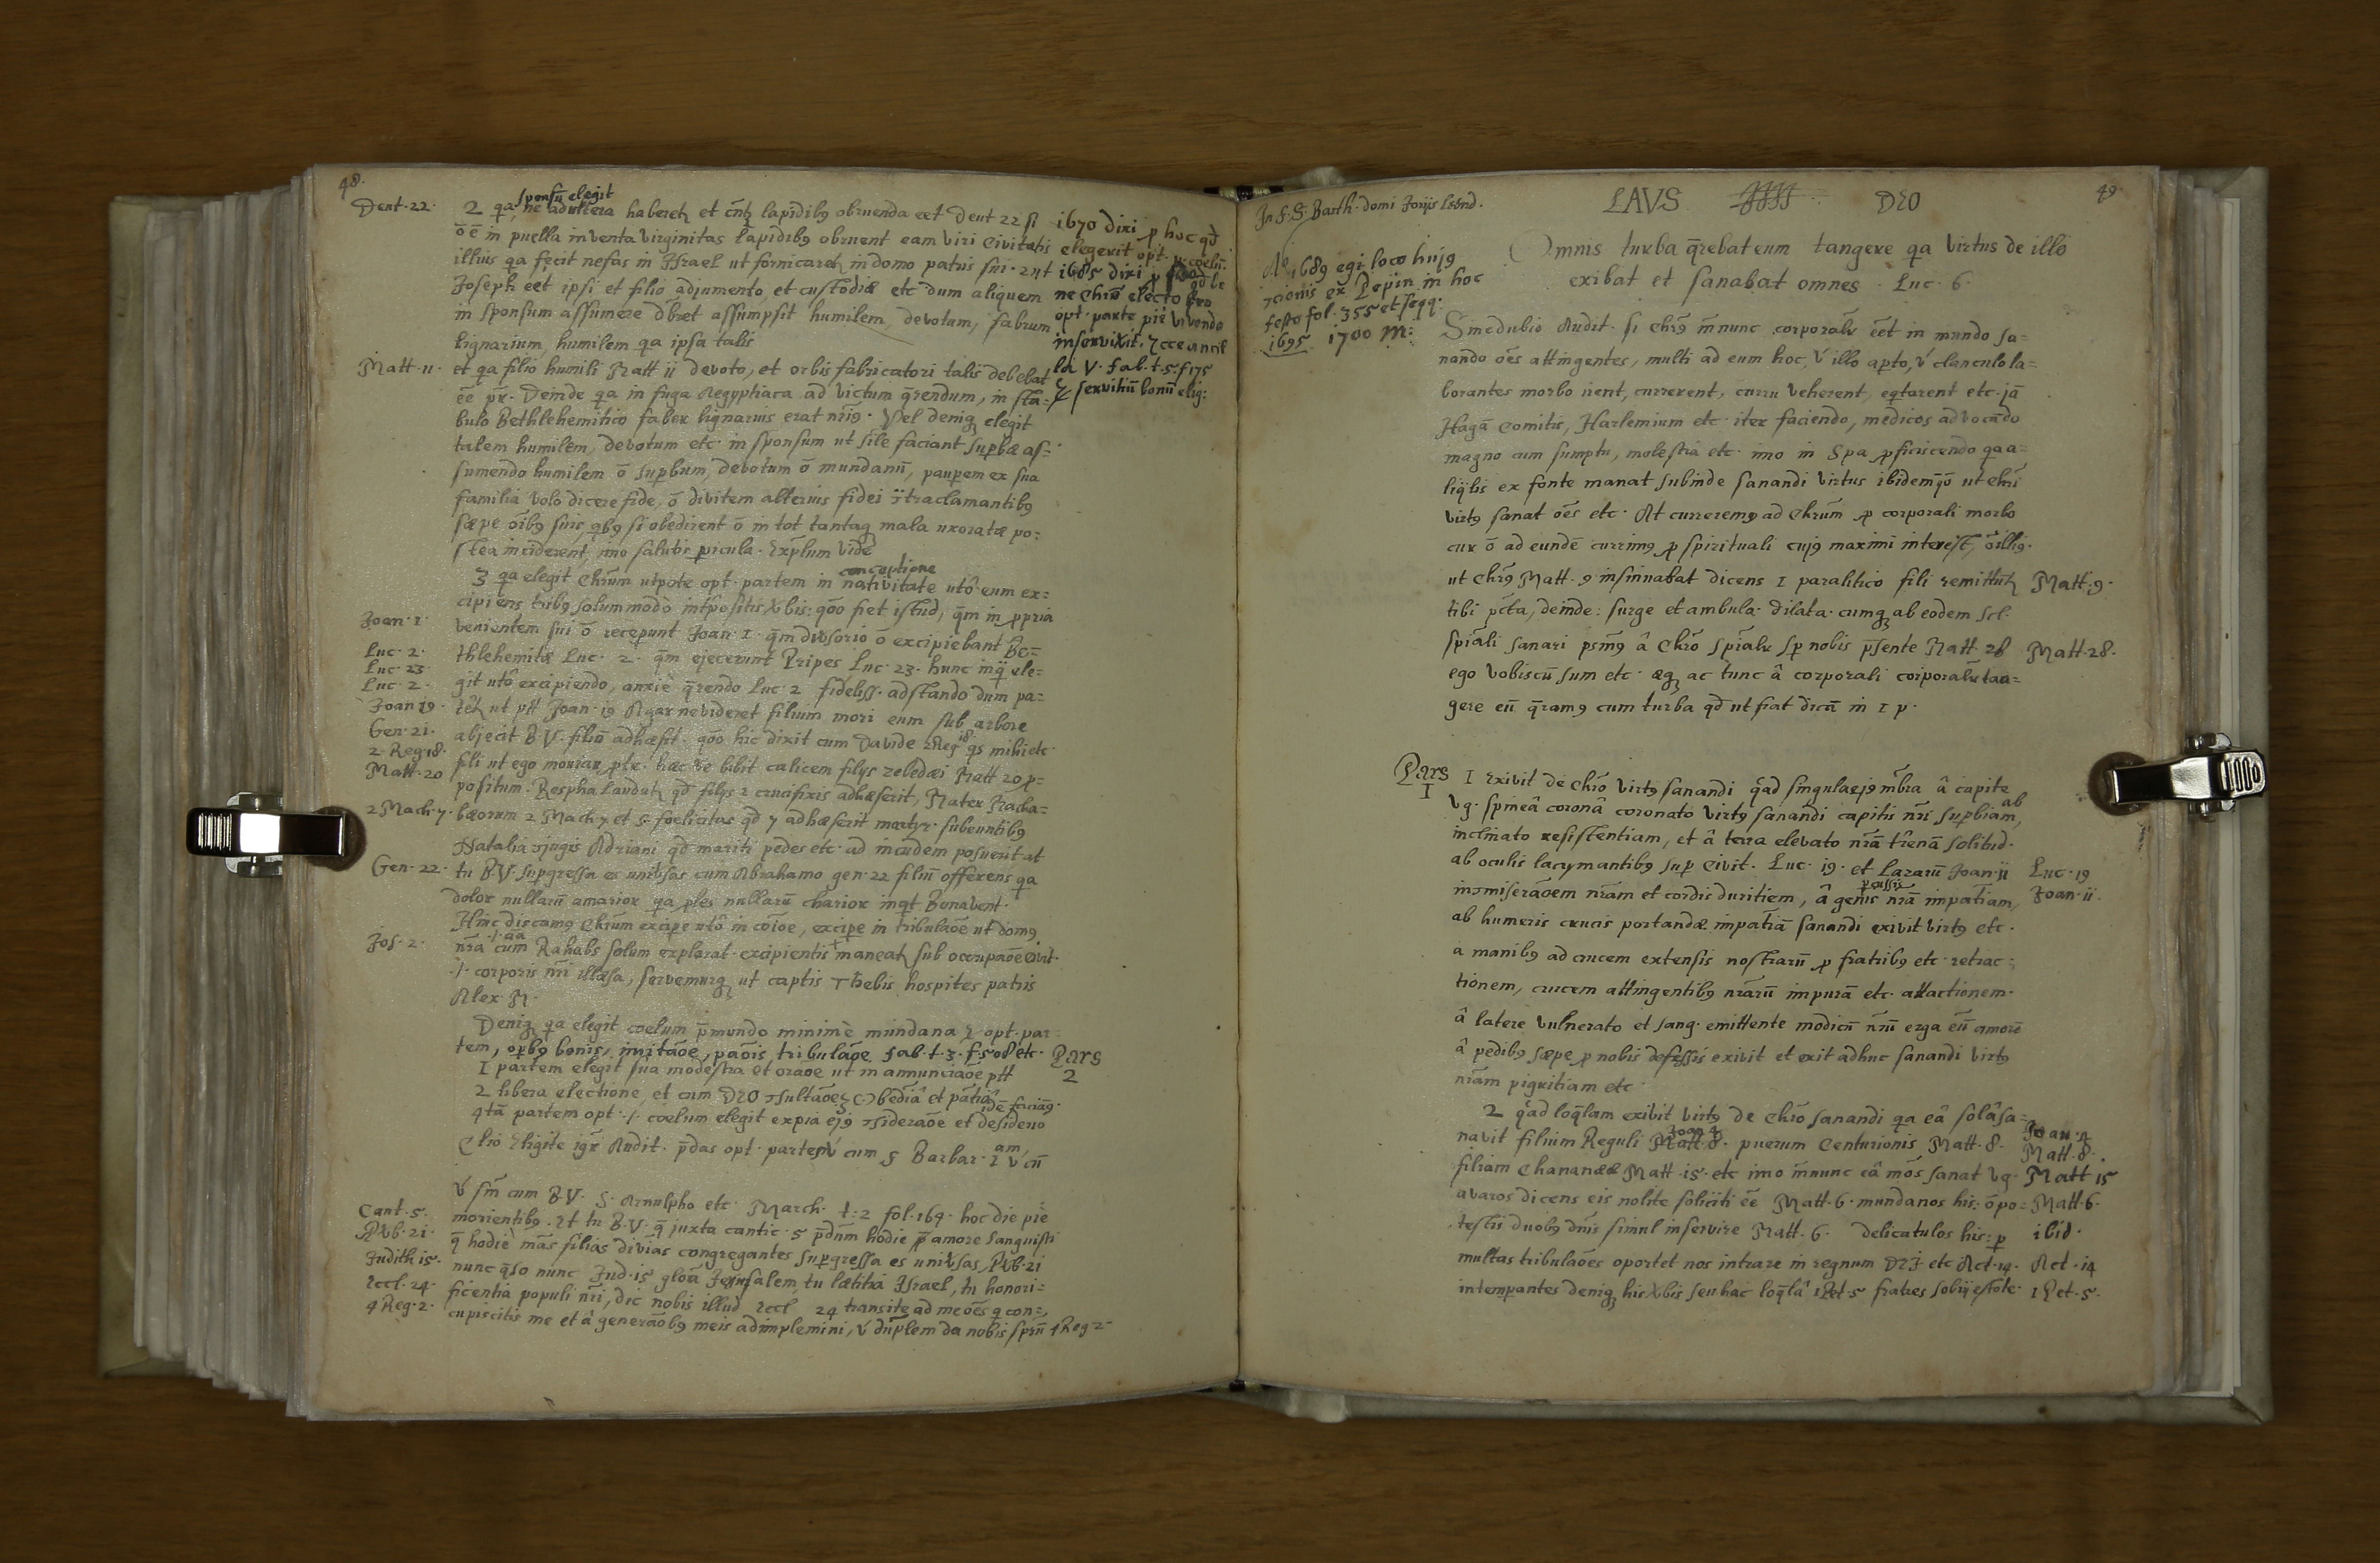 48.
Deut. 22.
sponsū elegit
2 qa, ne adultera haberetr et cntr lapidibq obruenda eet Deut 22 si
ōē in puella inventa virginitas lapidibq obruent eam viri civitatis
illius qa fecit nefas in Israel ut fornicaretr in domo patris sui. 2 ut
Joseph eet ipsi et filio adjumento, et custodiæ etc dum aliquem
in sponsum assumere dbret assumpsit humilem, devotam, fabrum
lignarium, humilem qa ipsa talis
1670 dixi p hoc qd
elegerit opt. p. coelū.
1685 dixi p
ne Chrm electo
opt. parte piè vivendo
inservivit. Ecce ancil
la V. fab. t. 5. f 175
servitiū bonū elig:
Matt. 11.
et qa filio humili Matt 11 devoto, et orbis fabricatori talis debebat
ēē pr. Deinde qa in fuga Aegyptiaca ad victum qrendum, in sta=
bulo Bethlehemitico faber lignarius erat nriq. Vel deniq elegit
talem humilem, devotum etc in sponsum ut sile faciant supbæ as=
sumendo humilem ō supbum, devotum ō mundanū, paupem ex sua
familia volo dicere fide, ō divitem alterius fidei ɔtraclamantibq
sæpe oībq suis, qbq si obedirent ō in tot tantaq mala uxoratæ po=
stea inciderent, imo salutis picula. Explum vide
conceptione
3 qa elegit Chrum utpote opt. partem in nativitate utō eum ex=
cipiens tribq solummodò intpositis vbis: qōo fiet istud, qm in ppria
Joan. 1.
venientem sui ō recepunt Joan. 1. qm divsorio ō excipiebant Be=
Luc. 2.
thlehemitæ Luc. 2. qm ejecerunt Pripes Luc. 23. hunc inqᷓ ele=
Luc. 23
Luc. 2.
git utō excipiendo, anxiè qrendo Luc. 2 fideliss. adstando dum pa=
Joan 19.
retr ut ptt Joan. 19 Agar ne videret filium mori eum sub arbore
Gen. 21.
abjecit B.V. filiō adhæsit. qōo hic dixit cum Davide 2 Reg 18. qs mihi etc.
2. Reg. 18.
Matt. 20
fili ut ego moriar p te. hæc de bibit calicem filijs Zebedæi Matt 20 p=
positum. Respha laudatr qd filijs 2 crucifixis adhæserit, Mater Macha=
2 Mach. 7.
bæorum 2 Mach 7 et S. foelicitas qd 7 adhæserit martyr. subeuntibq
Natalia ɔjugis Adriani qd mariti pedes etc. ad incudem posuerit at
Gen. 22.
tu B.V. supgressa es univsas cum Abrahamo gen. 22 filiū offerens qa
dolor nullarū amarior qa ples nullarū charior inqt Bonavent.
Hinc discamq Chrum excipe utō in coīoe, excipe in tribulaōe ut domq
Jos. 2.
nra cum Rahabs solum explorat. excipientis maneatr sub occupaōe civit.
.i. corporis nri illæsa, servemurq ut captis Thebis hospites patris
Alex. M.
Deniq qa elegit coelum p mundo minimè mundana E opt. par=
tem, opbq bonis, imitaōe, paōis, tribulaōe fab. t. 3. f 508 etc.
Pars
2
1 partem elegit sua modestia et oraōe ut in annunciaōe ptt
2 libera electione, et cum DEO ɔsultaōe, 3 obediâ et patiâ
idē faciamq.
4tā partem opt. .i. coelum elegit ex pia ejq ɔsideraōe et desiderio
Clio Eligite igr Audit. pdas opt. partes V cum S Barbar. 1am V cū
V sm cum B.V. S. Arnulpho etc. March. t. 2 fol. 164. hoc die piè
Cant. 5.
morientibq. Et tu B.V. q juxta cantic. 5 pdnm hodie p amore languisti
Pvb. 21.
q hodiè mās filias divias congregantes supgressa es univsas Pvb. 21
Judith 15.
nunc qso nunc Jud. 15 gloā Jerusalem, tu lætitia Israel, tu honori=
Eccl. 24.
ficentia populi nri, dic nobis illud Eccl 24 transite ad me oēs q con=
4 Reg. 2.
cupiscitis me et â generaōbq meis adimplemini, V duplem da nobis spm 4 Reg 2
49.
In f. S. Barth. domi Jorijs Lebrd.
LAVS DEO
Ao 1689 egi loco hujq
ɔcionis ex Pepijn in hoc
festo fol. 355 et seqq.
1695 1700 M:
Omnis turba qrebat eum tangere qa virtus de illo
exibat et sanabat omnes. Luc. 6.
Sine dubio Audit. si Chrq mnunc corporalr ēet in mundo sa=
nando oēs attingentes, multi ad eum hoc, V illo apto, V clanculo la=
borantes morbo irent, currerent, curru veherent, eqtarent etc. jā
Hagā Comitis, Harlemium etc. iter faciendo, medicos advocando
magno cum sumptu, molestia etc. imo in Spa pficiscendo qa a=
liqbis ex fonte manat subinde sanandi virtus ibidemqō ut Chri
virtq sanat oēs etc. At curreremq ad Chrum p corporali morbo
cur ō ad eundē currimq p spirituali cujq maximi interest, ō illiq.
ut Chrq Matt. 9 insinuabat dicens 1 paralitico fili remittutr
Matt. 9.
tibi pcta, deinde: surge et ambula. dilata. cumq ab eodem scl.
spiāli sanari psmq â Chrō spialr sp nobis psente Matt. 28
Matt. 28.
ego vobiscū sum etc. æq ac tunc â corporali corporalr tan=
gere eū qramq cum turba qd ut fiat dicā in 1 p.
Pars
1
1 Exivit de Chrō virtq sanandi qad singula ejq mbra â capite
vg. spineâ coronâ coronato virtq sanandi capitis nri supbiam,
ab
inclinato resistentiam, et â terra elevato nrā trenā solitud.
ab oculis lacrymantibq sup Civit. Luc. 19. et Lazarū Joan. 11
Luc. 19
inɔmiserāoem nram et cordis duritiem, â genis pcussis nrā impatiam,
Joan. 11.
ab humeris crucis portandæ impatiā sanandi exivit virtq etc.
a manibq ad crucem extensis nostrarū p fratribq etc. retrac=
tionem, crucem attingentibq nrarū impurā etc. attactionem.
â latere vulnerato et sang. emittente modicū nrū erga eū amorē
â pedibq sæpe p nobis defessis exivit et exit adhuc sanandi virtq
nram pigritiam etc.
2 qad loqlam exivit virtq de Chrō sanandi qa eâ solâ sa=
Joan 4
navit filium Reguli Matt. 8. puerum Centurionis Matt. 8.
Joan. 4
Matt. 8.
filiam Chananææ Matt. 15. etc imo mnunc eâ mōs sanat vg.
Matt 15
avaros dicens eis nolite soliciti ēē Matt. 6. mundanos his: ō po=
Matt. 6.
testis duobq dnis simul inservire Matt. 6. Delicatulos his: p
ibid.
multas tribulaōes oportet nos intrare in regnum DEI etc Act. 14.
Act. 14
intempantes deniq his vbis seu hac loqlâ 1 Pet. 5 fratres sobrij estote.
1 Pet. 5.